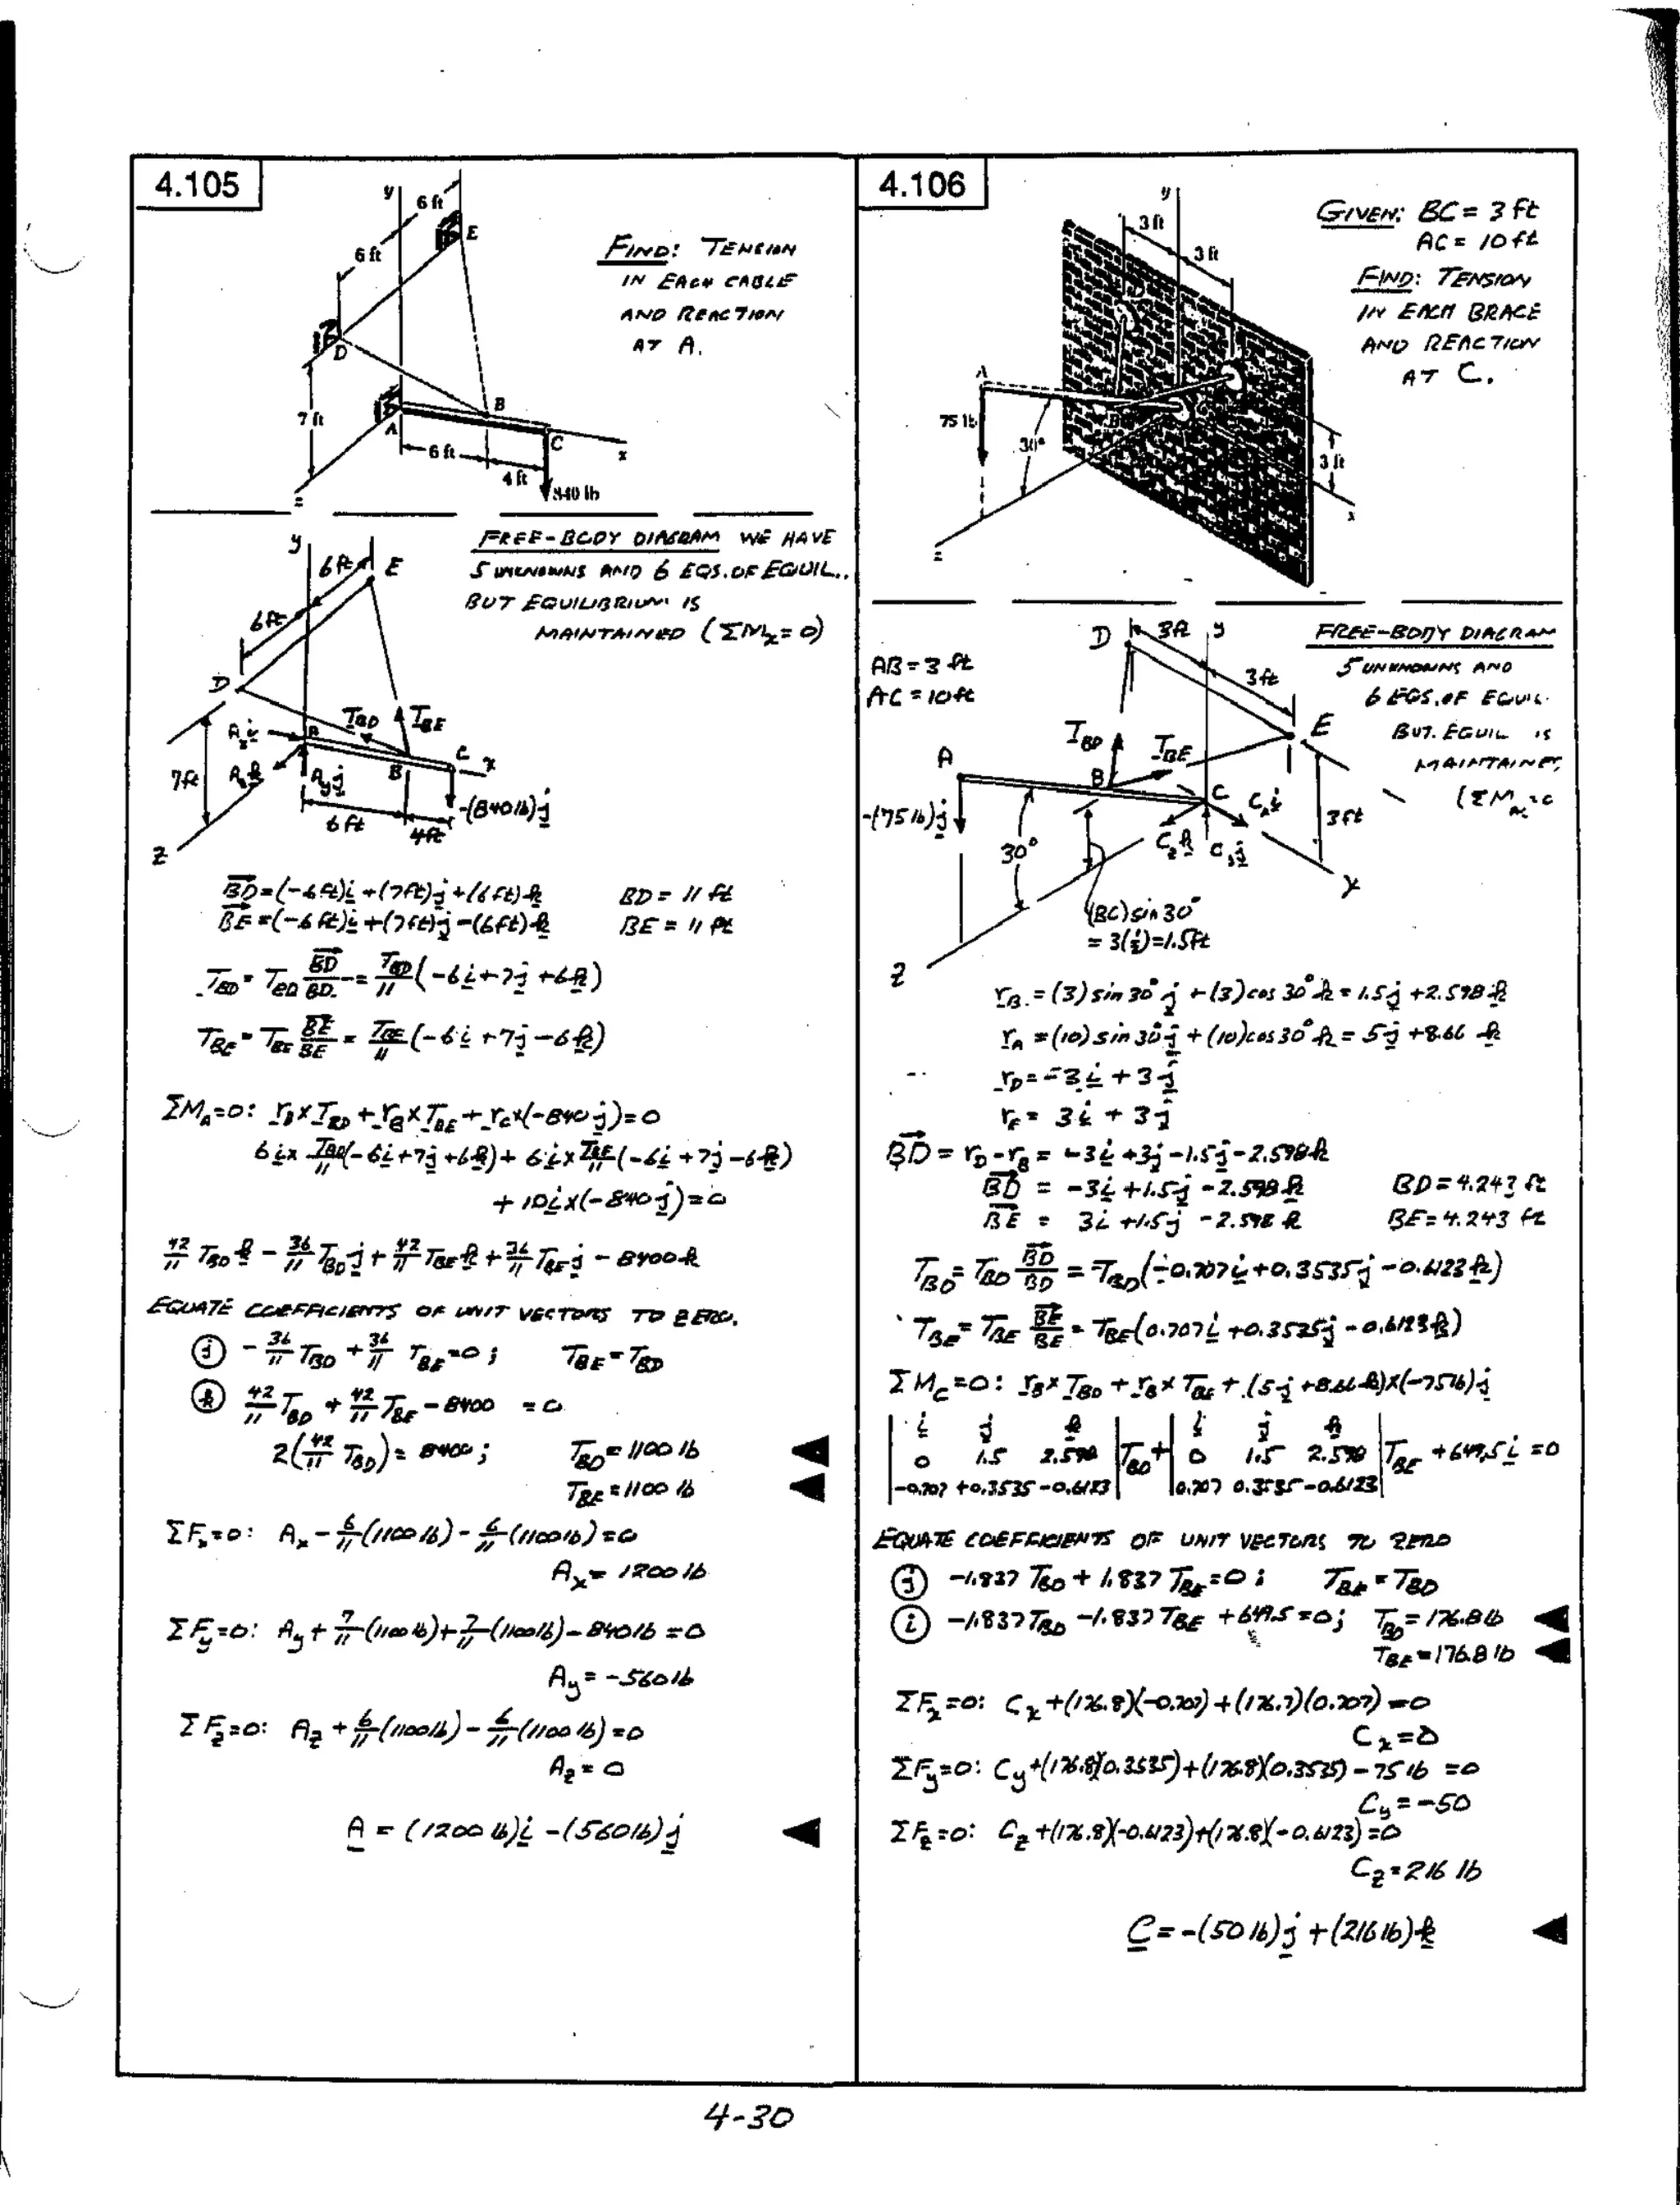 4.105
y
6 ft
E
6 ft
D
7 ft
A
B
6 ft
4 ft
C
x
840 lb
z
FIND: TENSION
IN EACH CABLE
AND REACTION
AT A.
FREE-BODY DIAGRAM WE HAVE
5 UNKNOWNS AND 6 EQS. OF EQUIL..
BUT EQUILIBRIUM IS
MAINTAINED (ΣMx = 0)
y
6 ft
E
6 ft
D
TBD
TBE
Ax i
A
C
x
7 ft
Az k
Ay j
B
-(840 lb) j
6 ft
4 ft
z
BD = (-6 ft)i + (7 ft)j + (6 ft)k BD = 11 ft
BE = (-6 ft)i + (7 ft)j - (6 ft)k BE = 11 ft
TBD = TBD BD/BD = TBD/11 (-6i + 7j + 6k)
TBE = TBE BE/BE = TBE/11 (-6i + 7j - 6k)
ΣMA = 0: rB x TBD + rB x TBE + rC x (-840 j) = 0
6i x TBD/11 (-6i + 7j + 6k) + 6i x TBE/11 (-6i + 7j - 6k)
+ 10i x (-840 j) = 0
42/11 TBD k - 36/11 TBD j + 42/11 TBE k + 36/11 TBE j - 8400 k
EQUATE COEFFICIENTS OF UNIT VECTORS TO ZERO.
(j) -36/11 TBD + 36/11 TBE = 0; TBE = TBD
(k) 42/11 TBD + 42/11 TBE - 8400 = 0
2(42/11 TBD) = 8400; TBD = 1100 lb
TBE = 1100 lb
ΣFx = 0: Ax - 6/11 (1100 lb) - 6/11 (1100 lb) = 0
Ax = 1200 lb
ΣFy = 0: Ay + 7/11 (1100 lb) + 7/11 (1100 lb) - 840 lb = 0
Ay = -560 lb
ΣFz = 0: Az + 6/11 (1100 lb) - 6/11 (1100 lb) = 0
Az = 0
A = (1200 lb)i - (560 lb)j
4.106
y
3 ft
3 ft
D
A
75 lb
30°
B
3 ft
x
z
GIVEN: BC = 3 ft
AC = 10 ft
FIND: TENSION
IN EACH BRACE
AND REACTION
AT C.
FREE-BODY DIAGRAM
5 UNKNOWNS AND
6 EQS. OF EQUIL.
BUT. EQUIL IS
(ΣM
AB = 3 ft
AC = 10 ft
D
3 ft
y
3 ft
E
TBD
TBE
A
B
C
Cx i
-(75 lb) j
30°
Cz k
Cy j
3 ft
(BC) sin 30°
= 3(½) = 1.5 ft
z
rB = (3) sin 30° j + (3) cos 30° k = 1.5 j + 2.598 k
rA = (10) sin 30° j + (10) cos 30° k = 5 j + 8.66 k
rD = -3 i + 3 j
rE = 3 i + 3 j
BD = rD - rB = -3 i + 3j - 1.5 j - 2.598 k
BD = -3i + 1.5 j - 2.598 k BD = 4.243 ft
BE = 3i + 1.5 j - 2.598 k BE = 4.243 ft
TBD = TBD BD/BD = TBD (-0.707 i + 0.3535 j - 0.6123 k)
TBE = TBE BE/BE = TBE (0.707 i + 0.3535 j - 0.6123 k)
ΣMC = 0: rB x TBD + rB x TBE + (5 j + 8.66 k) x (-75 lb) j
| i j k | | i j k |
| 0 1.5 2.598 | TBD + | 0 1.5 2.598 | TBE + 649.5 i = 0
| -0.707 +0.3535 -0.6123 | | 0.707 0.3535 -0.6123 |
EQUATE COEFFICIENTS OF UNIT VECTORS TO ZERO
(j) -1.837 TBD + 1.837 TBE = 0; TBE = TBD
(i) -1.837 TBD - 1.837 TBE + 649.5 = 0; TBD = 176.8 lb
TBE = 176.8 lb
ΣFx = 0: Cx + (176.8)(-0.707) + (176.7)(0.707) = 0
Cx = 0
ΣFy = 0: Cy + (176.8)(0.3535) + (176.8)(0.3535) - 75 lb = 0
Cy = -50
ΣFz = 0: Cz + (176.8)(-0.6123) + (176.8)(-0.6123) = 0
Cz = 216 lb
C = -(50 lb) j + (216 lb) k
4-30